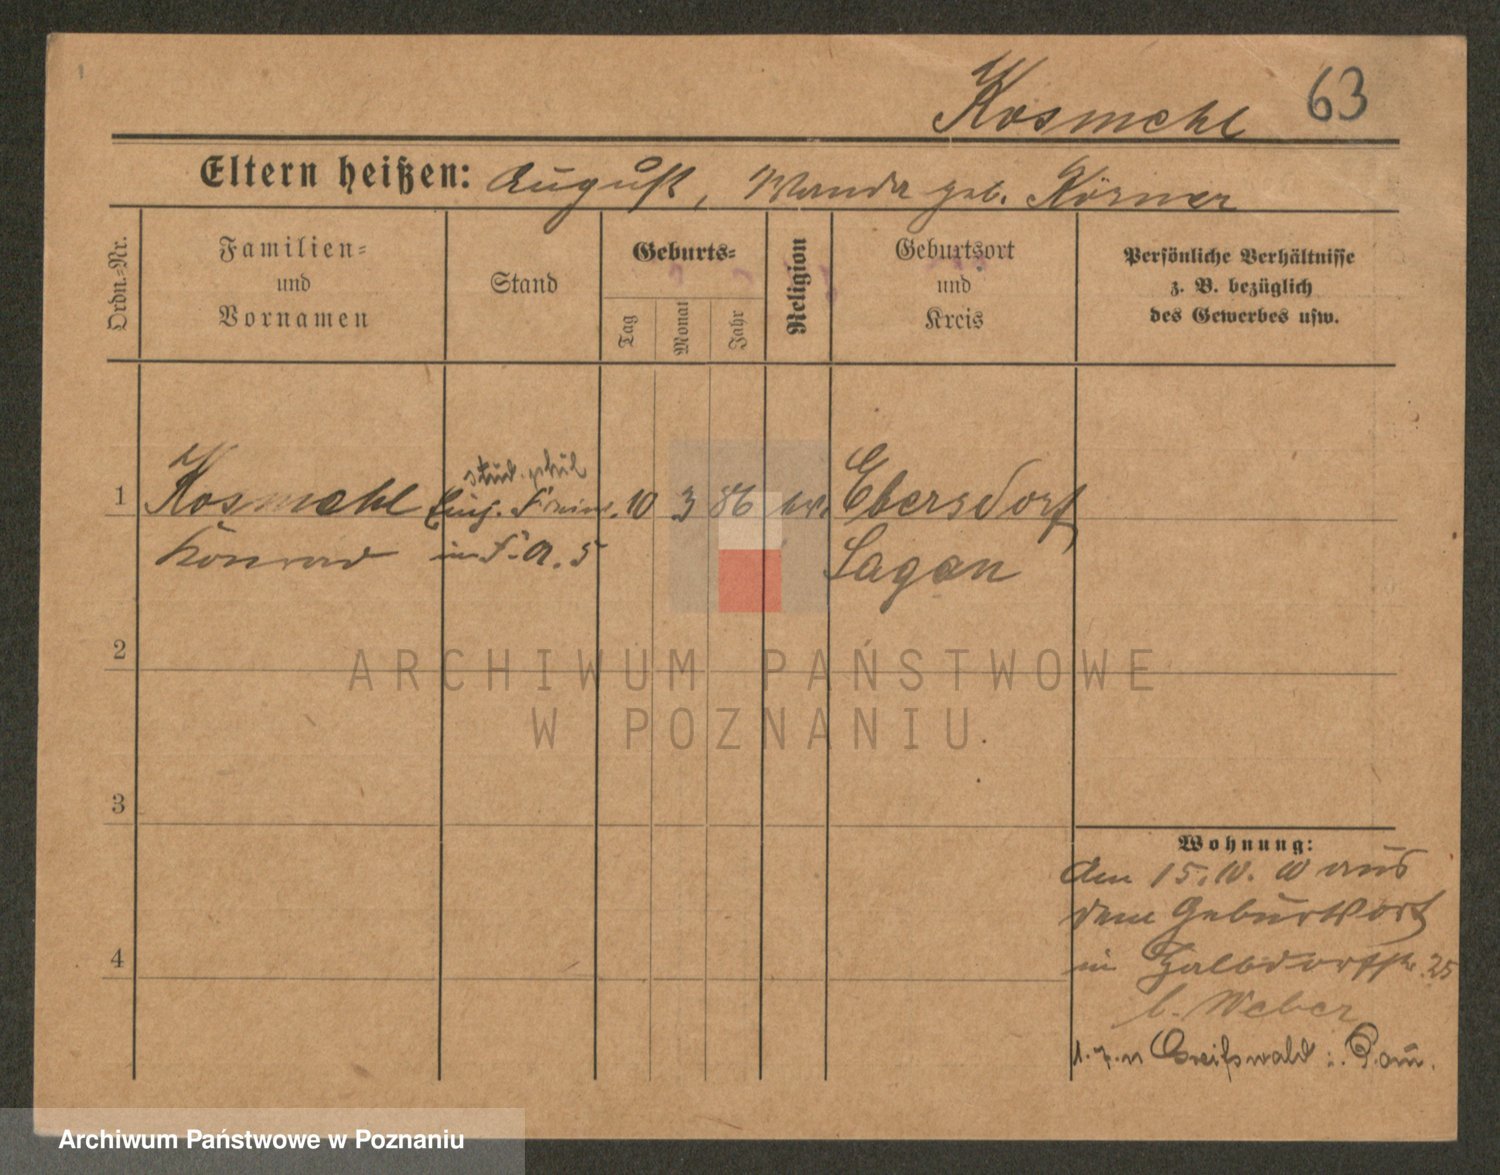 Kosmehl 63
Eltern heißen: August, Wanda geb. Körner
Ordn.-Nr.
Familien-
und
Vornamen
Stand
Geburts-
Tag
Monat
Jahr
Religion
Geburtsort
und
Kreis
Persönliche Verhältnisse
z. B. bezüglich
des Gewerbes usw.
stud. phil
1 Kosmehl Einj. Freiw. 10 3 86 ev. Ebersdorf
Konrad in F. A. 5 Sagan
2
ARCHIWUM PAŃSTWOWE
W POZNANIU
3
Wohnung:
Am 15. 10. 10 aus
dem Geburtsort
4
in Halbdorfstr. 25
b. Weber
1. 7. 11 Greifswald i. Pom.
Archiwum Państwowe w Poznaniu